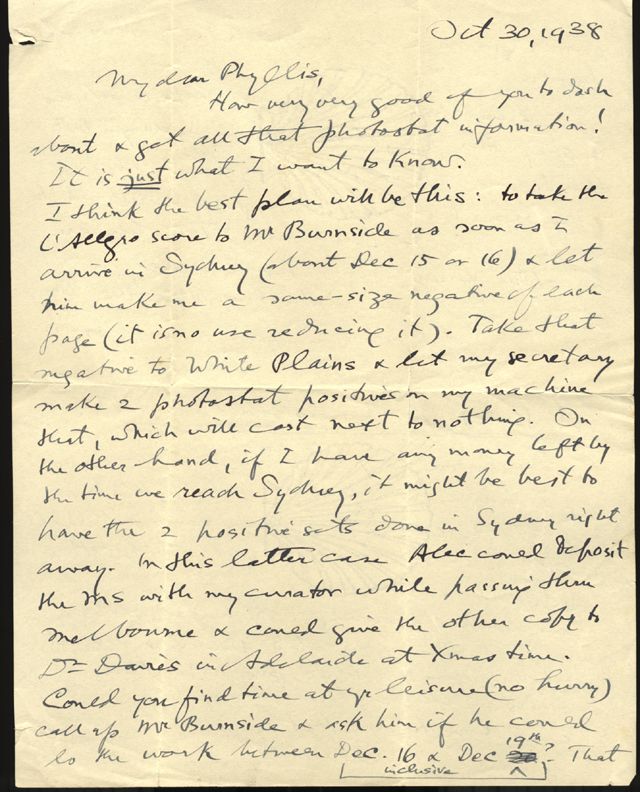 Oct 30, 1938
My dear Phyllis,
How very very good of you to dash
about & get all that photostat information!
It is just what I want to know.
I think the best plan will be this: to take the
L'Allegro score to Mr Burnside as soon as I
arrive in Sydney (about Dec 15 or 16) & let
him make me a same-size negative of each
page (it is no use reducing it). Take that
negative to White Plains & let my secretary
make 2 photostat positives on my machine
that, which will cost next to nothing. On
the other hand, if I have any money left by
the time we reach Sydney, it might be best to
have the 2 positive sets done in Sydney right
away. In this latter case Alec could deposit
the MS with my curator while passing thru
Melbourne & could give the other copy to
Dr Davies in Adelaide at Xmas time.
Could you find time at yr leisure (no hurry)
call up Mr Burnside & ask him if he could
do the work between Dec. 16 & Dec 19th? That
inclusive